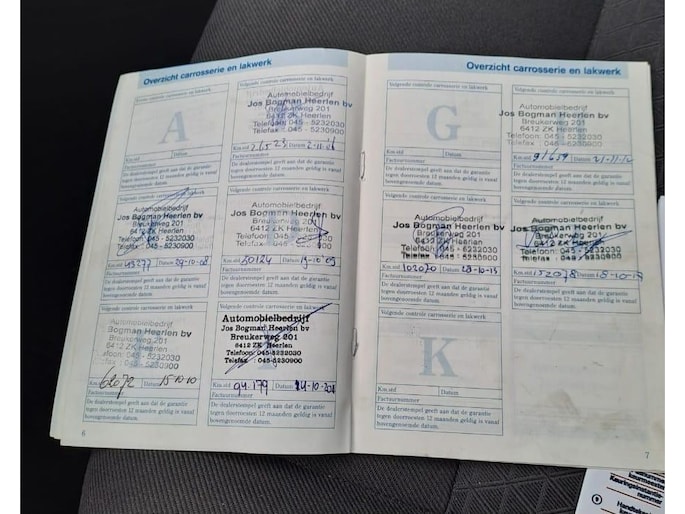 Overzicht carrosserie en lakwerk
A
Km.std Datum
Factuurnummer
De dealerstempel geeft aan dat de garantie
tegen doorroesten 12 maanden geldig is vanaf
bovengenoemde datum.
Volgende controle carrosserie en lakwerk
Automobielbedrijf
Jos Bogman Heerlen bv
Breukerweg 201
6412 ZK Heerlen
Telefoon: 045 - 5232030
Telefax : 045 - 5230900
Km.std Datum 2-11-06
Factuurnummer
De dealerstempel geeft aan dat de garantie
tegen doorroesten 12 maanden geldig is vanaf
bovengenoemde datum.
Volgende controle carrosserie en lakwerk
Automobielbedrijf
Jos Bogman Heerlen bv
Breukerweg 201
6412 ZK Heerlen
Telefoon: 045 - 5232030
Telefax : 045 - 5230900
Km.std 43277 Datum 29-10-08
Factuurnummer
De dealerstempel geeft aan dat de garantie
tegen doorroesten 12 maanden geldig is vanaf
bovengenoemde datum.
Volgende controle carrosserie en lakwerk
Automobielbedrijf
Jos Bogman Heerlen bv
Breukerweg 201
6412 ZK Heerlen
Telefoon: 045 - 5232030
Telefax : 045 - 5230900
Km.std 50124 Datum 19-10-09
Factuurnummer
De dealerstempel geeft aan dat de garantie
tegen doorroesten 12 maanden geldig is vanaf
bovengenoemde datum.
Volgende controle carrosserie en lakwerk
Automobielbedrijf
Bogman Heerlen bv
Breukerweg 201
6412 ZK Heerlen
Telefoon: 045 - 5232030
Telefax : 045 - 5230900
Km.std 62072 Datum 15-10-10
Factuurnummer
De dealerstempel geeft aan dat de garantie
tegen doorroesten 12 maanden geldig is vanaf
bovengenoemde datum.
Volgende controle carrosserie en lakwerk
Automobielbedrijf
Jos Bogman Heerlen bv
Breukerweg 201
6412 ZK Heerlen
Telefoon: 045-5232030
Telefax : 045-5230900
Km.std 94.179 Datum
Factuurnummer
De dealerstempel geeft aan dat de garantie
tegen doorroesten 12 maanden geldig is vanaf
bovengenoemde datum.
6
Overzicht carrosserie en lakwerk
Volgende controle carrosserie en lakwerk
G
Km.std Datum
Factuurnummer
De dealerstempel geeft aan dat de garantie
tegen doorroesten 12 maanden geldig is vanaf
bovengenoemde datum.
Volgende controle carrosserie en lakwerk
Automobielbedrijf
Jos Bogman Heerlen bv
Breukerweg 201
6412 ZK Heerlen
Telefoon: 045 - 5232030
Telefax : 045 - 5230900
Km.std 91659 Datum 21-11-12
Factuurnummer
De dealerstempel geeft aan dat de garantie
tegen doorroesten 12 maanden geldig is vanaf
bovengenoemde datum.
Volgende controle carrosserie en lakwerk
Automobielbedrijf
Jos Bogman Heerlen bv
Breukerweg 201
6412 ZK Heerlen
Telefoon: 045 - 5232030
Telefax : 045 - 5230900
Km.std 102070 Datum 29-10-13
Factuurnummer
De dealerstempel geeft aan dat de garantie
tegen doorroesten 12 maanden geldig is vanaf
bovengenoemde datum.
Volgende controle carrosserie en lakwerk
Automobielbedrijf
Jos Bogman Heerlen bv
Breukerweg 201
6412 ZK Heerlen
Telefoon: 045 - 5232030
Telefax : 045 - 5230900
Km.std 152078 Datum
Factuurnummer
De dealerstempel geeft aan dat de garantie
tegen doorroesten 12 maanden geldig is vanaf
bovengenoemde datum.
Volgende controle carrosserie en lakwerk
K
Km.std Datum
Factuurnummer
De dealerstempel geeft aan dat de garantie
tegen doorroesten 12 maanden geldig is vanaf
bovengenoemde datum.
7
keurmeester
Keuringsinstantie-
nummer